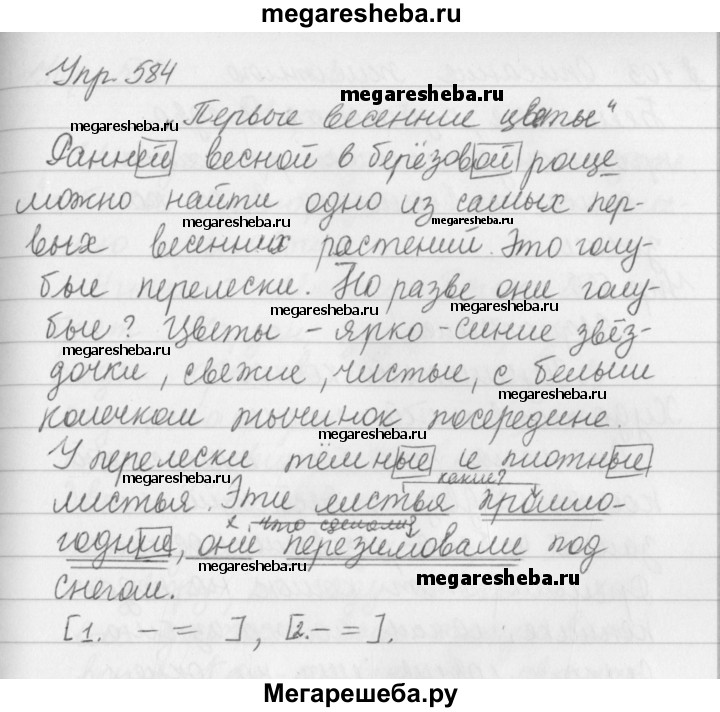 megaresheba.ru
Упр. 584
megaresheba.ru
megaresheba.ru
„Первые весенние цветы“
Ранней весной в берёзовой роще
megaresheba.ru
можно найти одно из самых пер-
megaresheba.ru
megaresheba.ru
вых весенних растений. Это голу-
megaresheba.ru
бые перелески. Но разве они голу-
megaresheba.ru
megaresheba.ru
бые? Цветы – ярко-синие звёз-
megaresheba.ru
дочки, свежие, чистые, с белым
megaresheba.ru
колечком тычинок посередине.
megaresheba.ru
У перелески тёмные и плотные
megaresheba.ru
какие?
листья. Эти листья прошло-
х. что сделали?
годние, они перезимовали под
megaresheba.ru
megaresheba.ru
снегом.
[1. – = ], [2. – = ].
Мегарешеба.ру